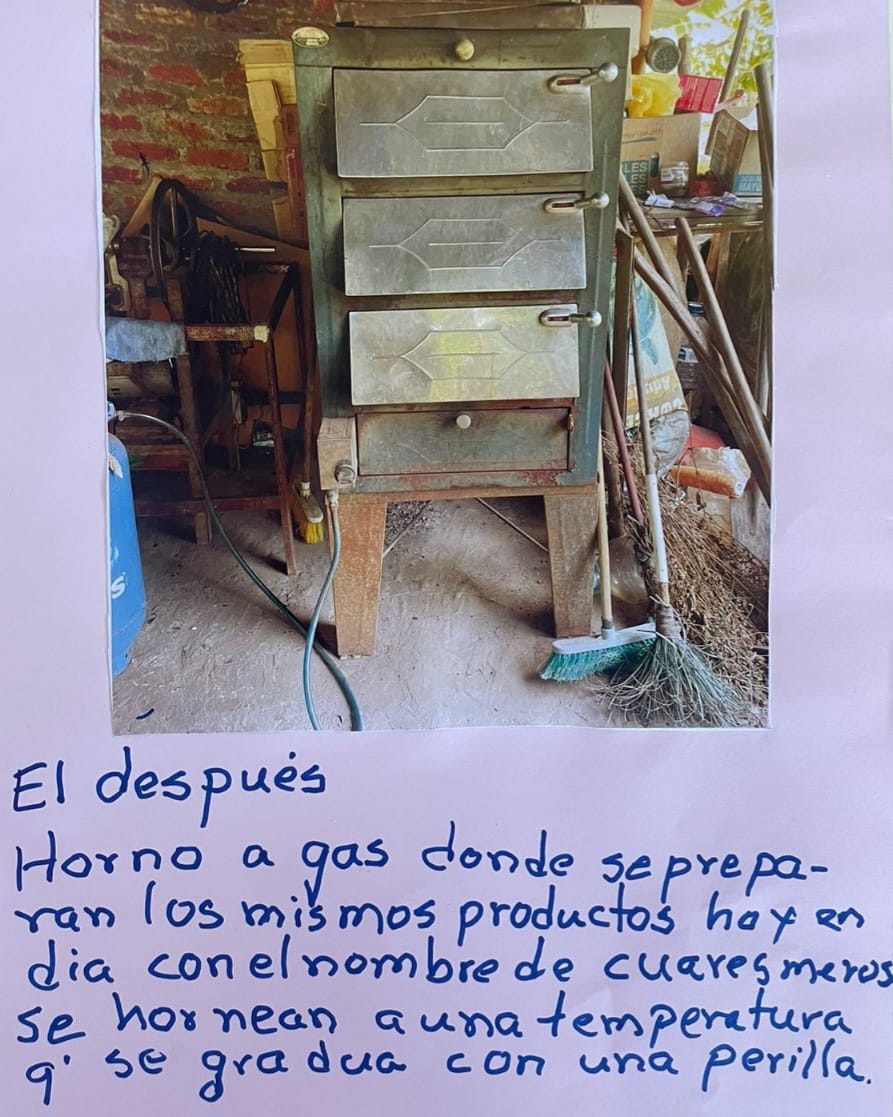 LES
El después
Horno a gas donde se prepa-
ran los mismos productos hoy en
dia con el nombre de cuaresmeros
se hornean a una temperatura
q' se gradua con una perilla.